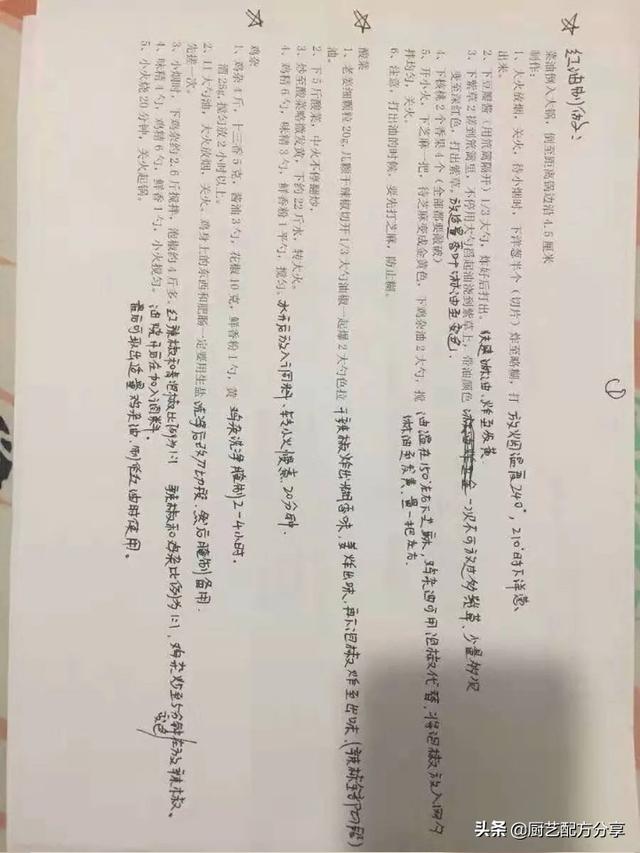 ①
红油制作:
菜油倒入大锅，倒至距离锅边沿 4.5 厘米
制作:
1、大火放烟，关火，待小烟时，下洋葱半个（切片）炸至略糊，打 放火烟温度240°，210°时下洋葱、
出来。
2、下豆瓣酱（用笊篱隔开）1/3 大勺，炸好后打出。快速淋油，炸至发黄
3、下紫草 2 捞到笊篱里，不停用大勺舀起油浇到紫草上，带油颜色 一次不可放过多紫草、少量
变至深红色，打出紫草，放适量香叶淋油至变色.
4、下核桃 2 个香果 4 个（全部都要敲破）
5、开小火，下芝麻一把，待芝麻变成金黄色，下鸡杂油 2 大勺，搅 油温在150°左右下芝麻，鸡杂油可用泡椒代替、将泡椒放入网勺
拌均匀，关火。 淋油至发黄、
6、注意，打出油的时候，要先打芝麻，防止糊。
酸菜
1、老姜细颗粒 20g，几颗干辣椒切开 1/3 大勺油椒一起爆 2 大勺色拉 干辣椒炸出糊香味，姜炸出味，再下泡椒炸至出味.
油。
2、下 5 斤酸菜，中火不停翻炒。
3、炒至酸菜略微发黄，下约 22 斤水，转大火。
4、鸡精 6 勺，味精 3 勺，鲜香粉 1 平勺，搅匀。水开后放入调料、转小火慢煮、20分钟.
鸡杂
1、鸡杂 4 斤，十三香 5 克，酱油 3 勺，花椒 10 克，鲜香粉 1 勺，黄 鸡杂洗净腌制2-4小时.
酒 25g，搅匀放 2 小时以上。
2、11 大勺油，大火放烟，关火。鸡身上的东西和肥肠一定要用生盐 洗净后改刀切段、然后腌制备用.
先搓一次。
3、小烟时，下鸡杂约 2.6 斤搅拌，泡椒约 4 斤多，红辣椒和青泡椒比例为1:1 辣椒和鸡杂比例为1:1，鸡杂炒至5分钟左右放辣椒。
变色
4、味精 4 勺，鸡精 6 勺，鲜香 1 勺，小火搅匀。油烧开后在加入调料.
5、小火烧 20 分钟，关火起锅。最后可取出适量鸡杂油、制作红油时使用。
头条@厨艺配方分享